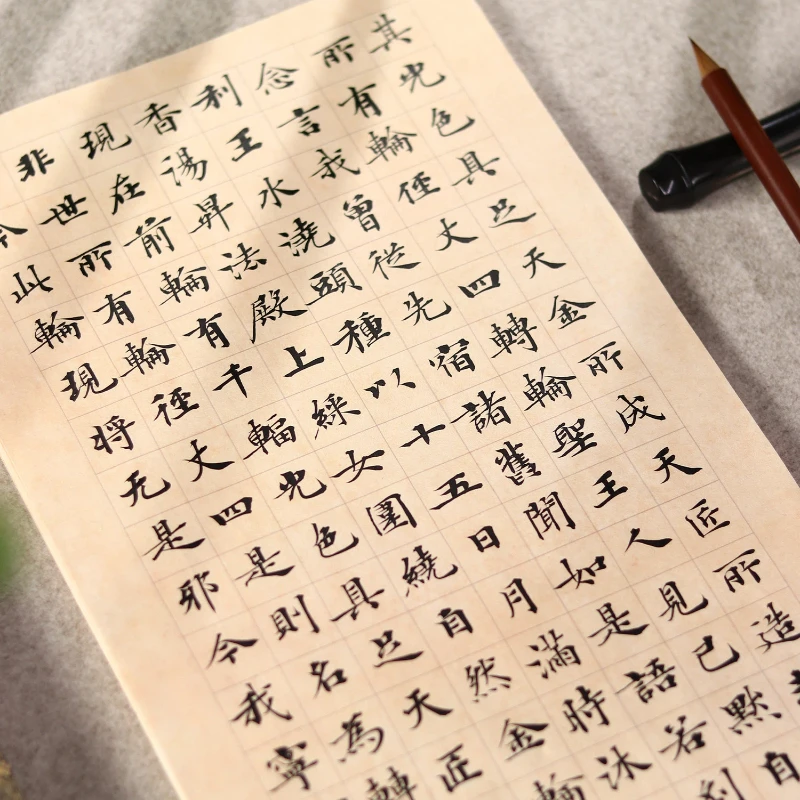 其光色具足天金所成天匠所造
所有輪徑丈四轉輪聖王人見已默自
念言我曾從先宿諸舊聞如是語若利
利王水澆頭種以十五日月滿時沐
香湯昇法殿上綵女圍繞自然金輪
現在前輪有千輻光色具足天匠
非世所有輪徑丈四是則名為轉
今此輪現将无是邪今我寧